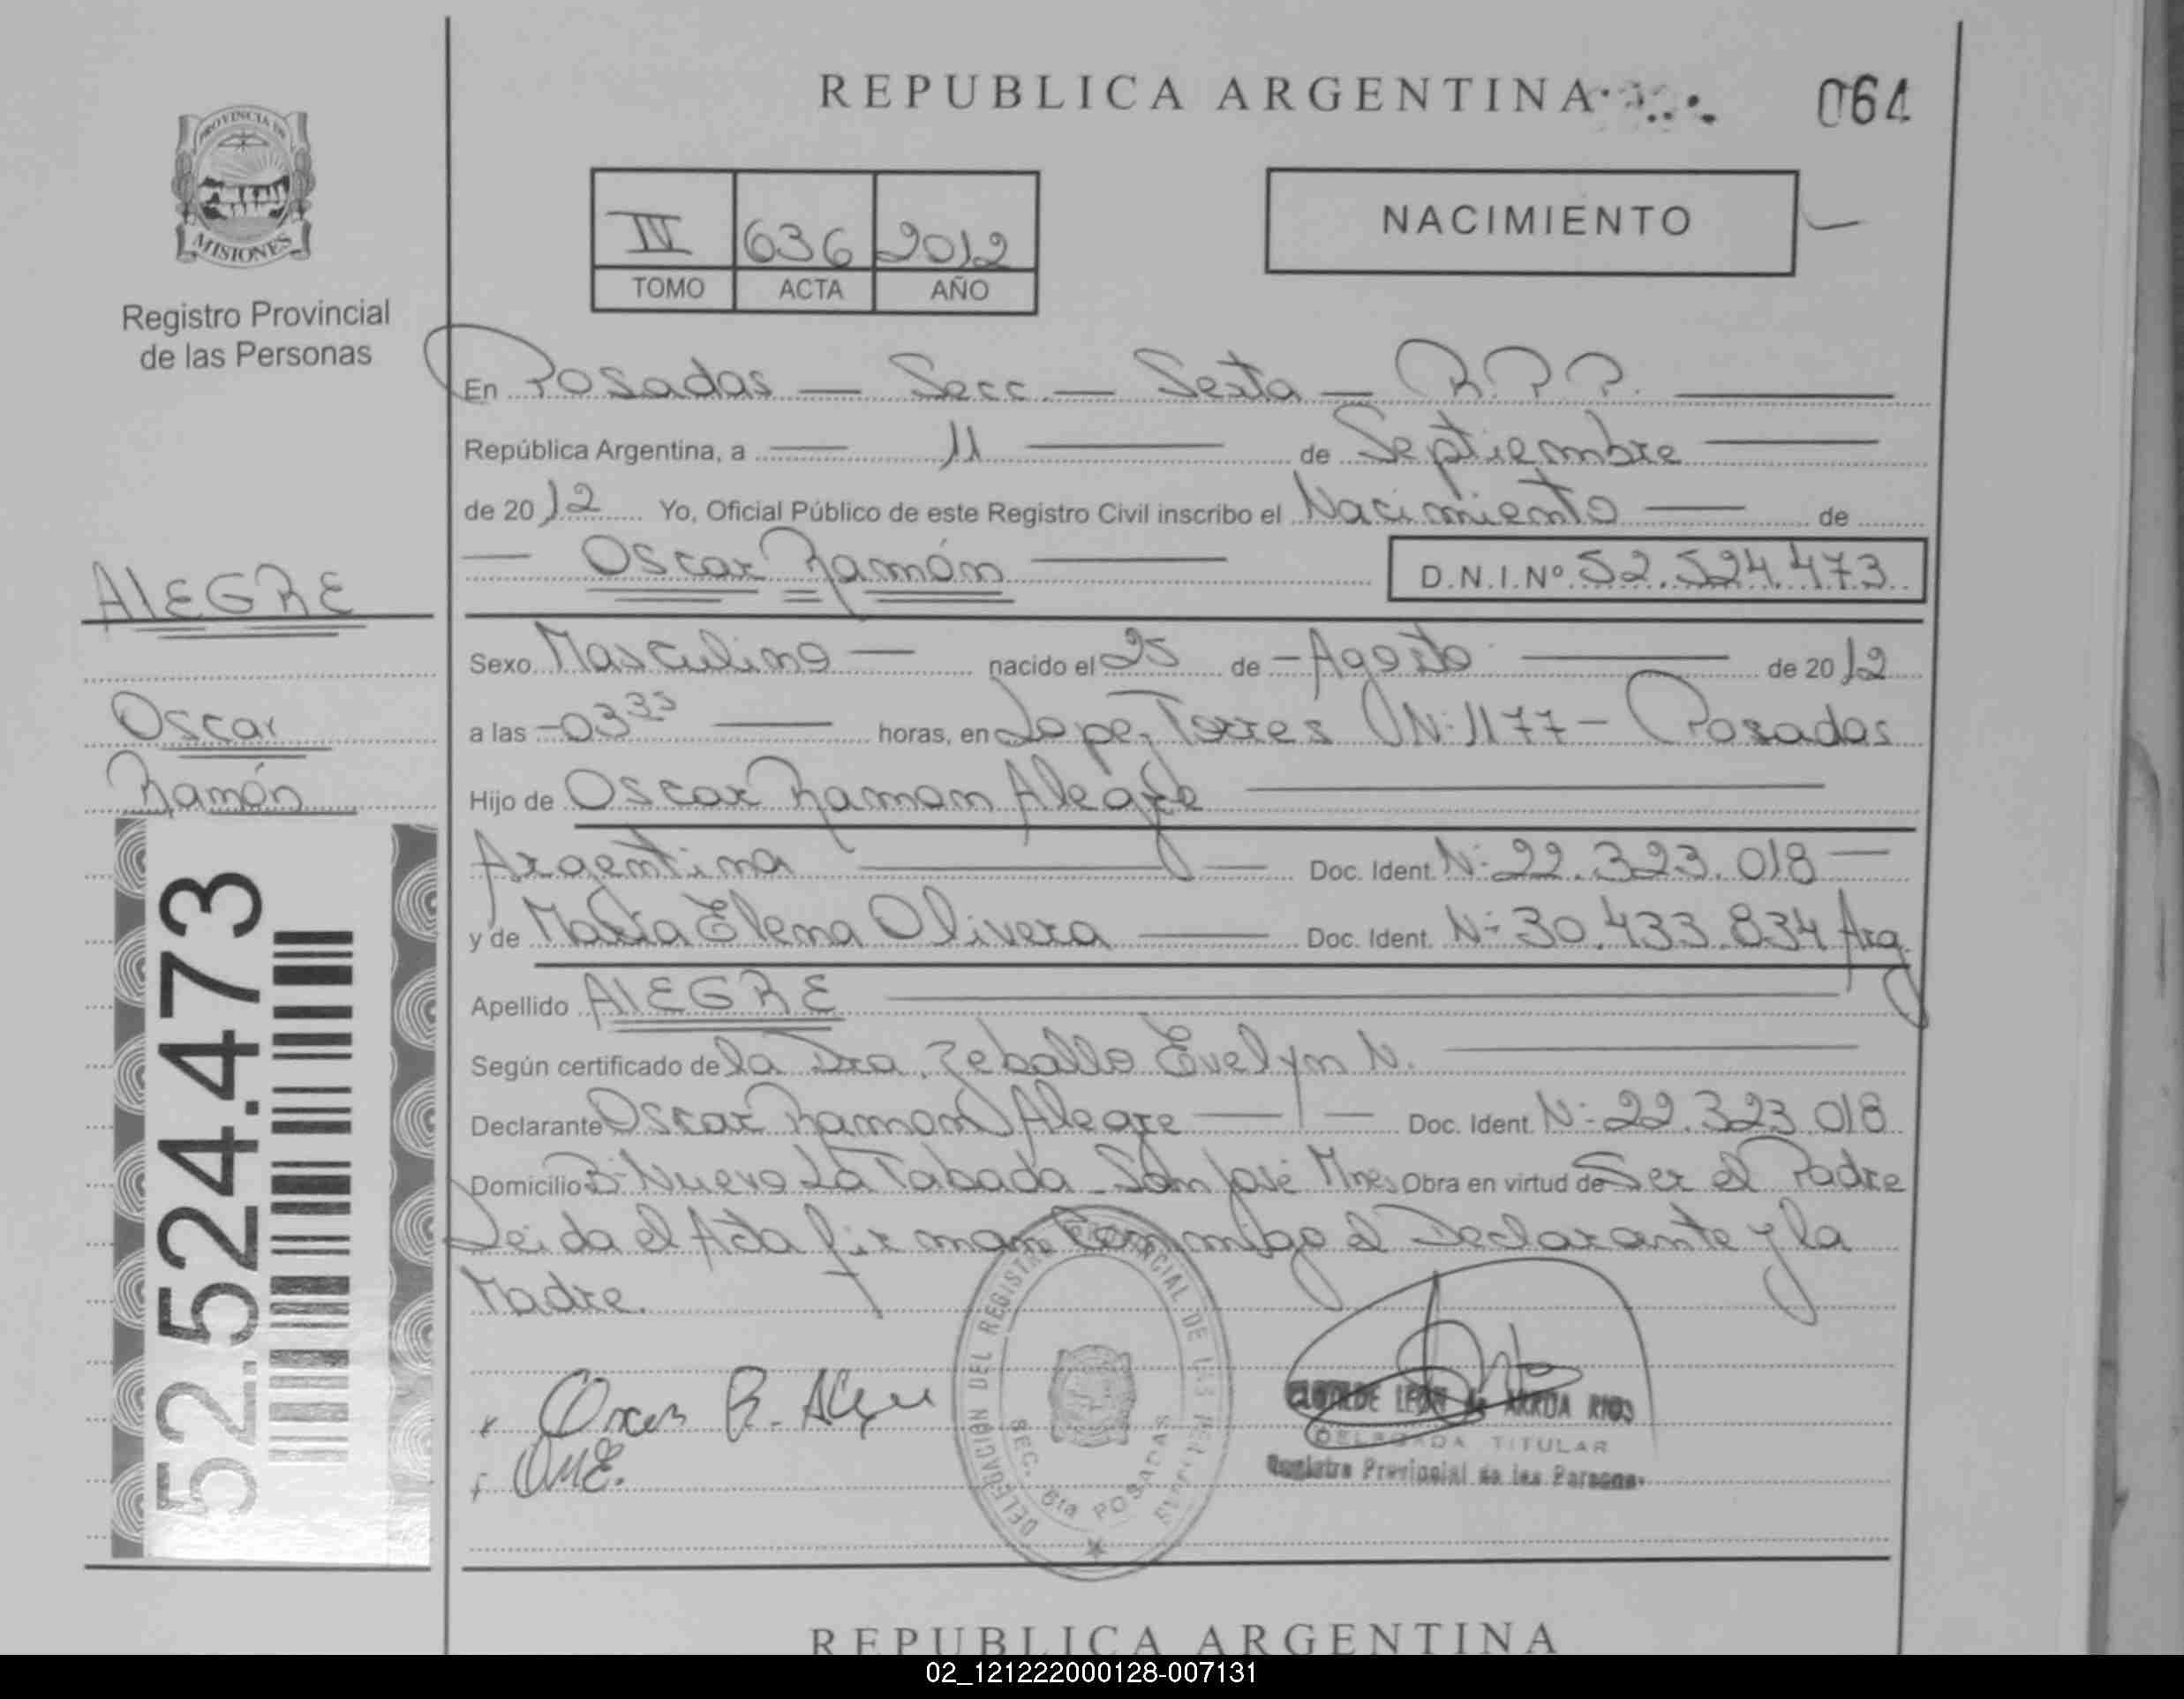 REPUBLICA ARGENTINA
064
PROVINCIA DE
MISIONES
Registro Provincial
de las Personas
IV 636 2012
TOMO ACTA AÑO
NACIMIENTO
En Posadas — Secc. — Sexta — R.P.P.
República Argentina, a — 11 — de Septiembre
de 2012 Yo, Oficial Público de este Registro Civil inscribo el Nacimiento — de
— Oscar Ramón — D.N.I.Nº 52.524.473
ALEGRE
Oscar
Ramón
52.524.473
Sexo Masculino — nacido el 25 de - Agosto — de 2012
a las - 03 35 — horas, en Lope, Torres N: 1177 - Posadas
Hijo de Oscar Ramon Alegre
Argentina — Doc. Ident. N: 22.323.018 —
y de María Elena Olivera — Doc. Ident. N: 30.433.834 Arg.
Apellido ALEGRE
Según certificado de la Dra. Zeballo Evelyn N.
Declarante Oscar Ramon Alegre — Doc. Ident. N: 22.323.018
Domicilio B: Nuevo La Tabada - San José Mnes Obra en virtud de Ser el Padre
Leida el Acta firman conmigo el Declarante y la
Madre.
Oscar R. Alegre
OME.
DELEGACIÓN DEL REGISTRO PROVINCIAL DE LAS PERSONAS
SEC. 6ta POSADAS
CLOTILDE LEON de ARRUA RIOS
DELEGADA TITULAR
Registro Provincial de las Personas
REPUBLICA ARGENTINA
02_121222000128-007131